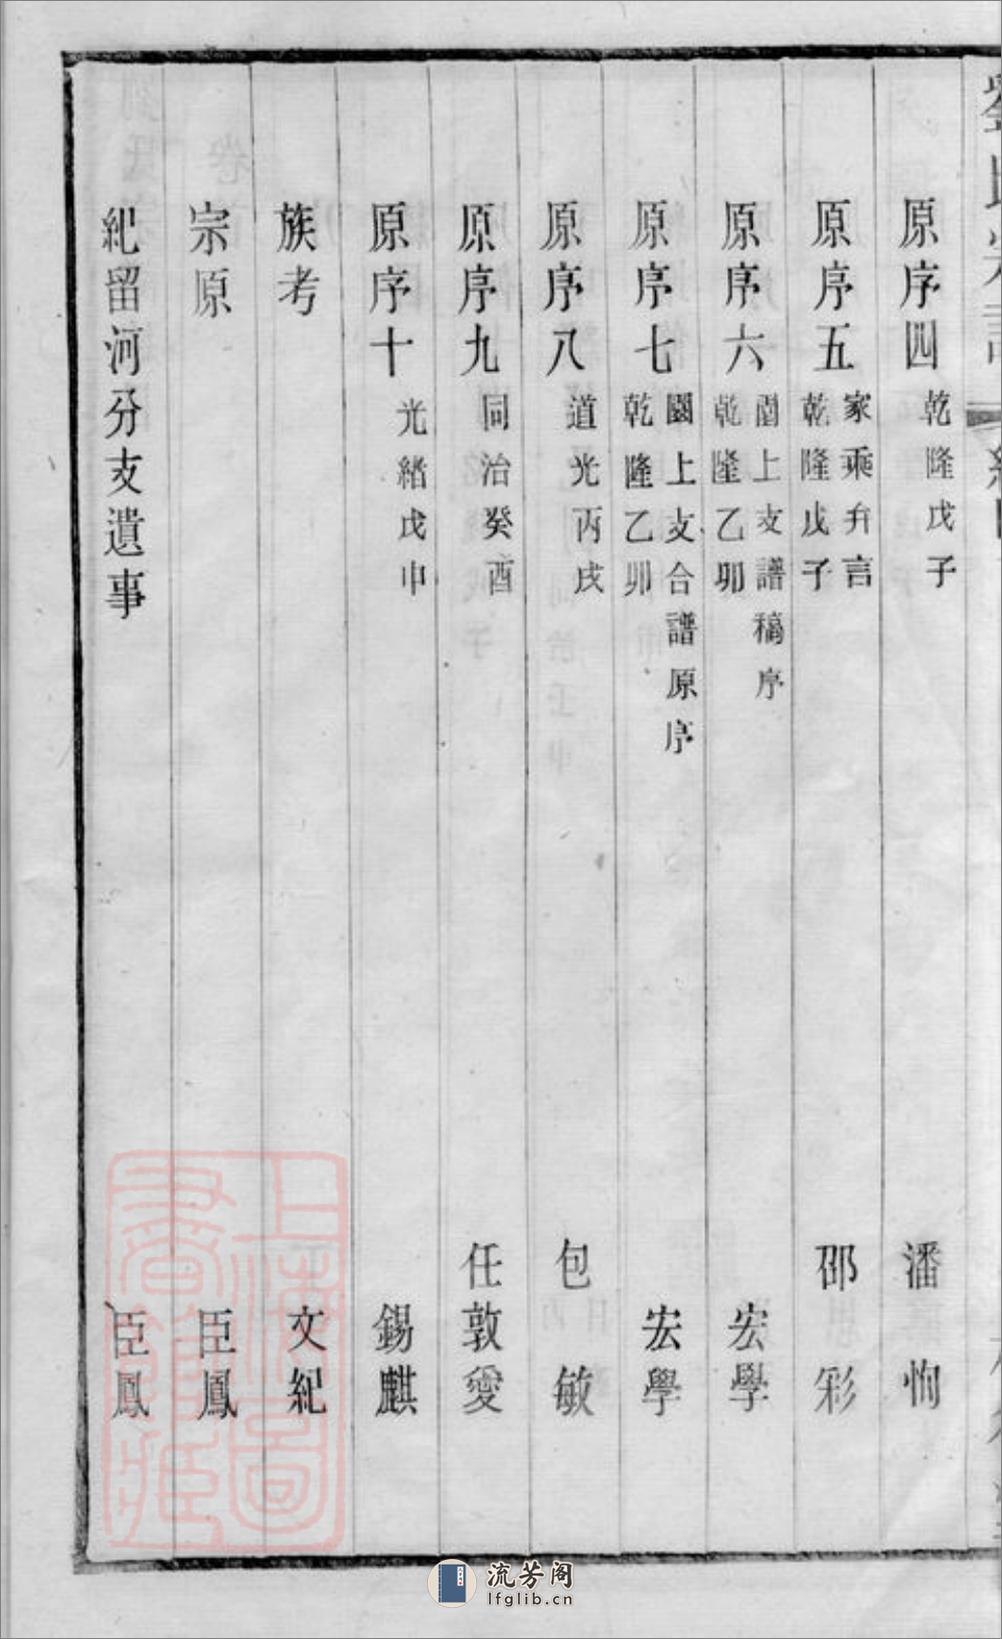 原序四 乾隆戊子 潘恂
原序五 家乘弁言 乾隆戊子 邵彩
原序六 圖上支譜稿序 乾隆乙卯 宏學
原序七 圖上支合譜原序 乾隆乙卯 宏學
原序八 道光丙戌 包敏
原序九 同治癸酉 任敦愛
原序十 光緒戊申 錫麒
族考 文紀
宗原 臣鳳
紀留河分支遺事 臣鳳
上海圖書館藏
流芳阁
lfglib.cn